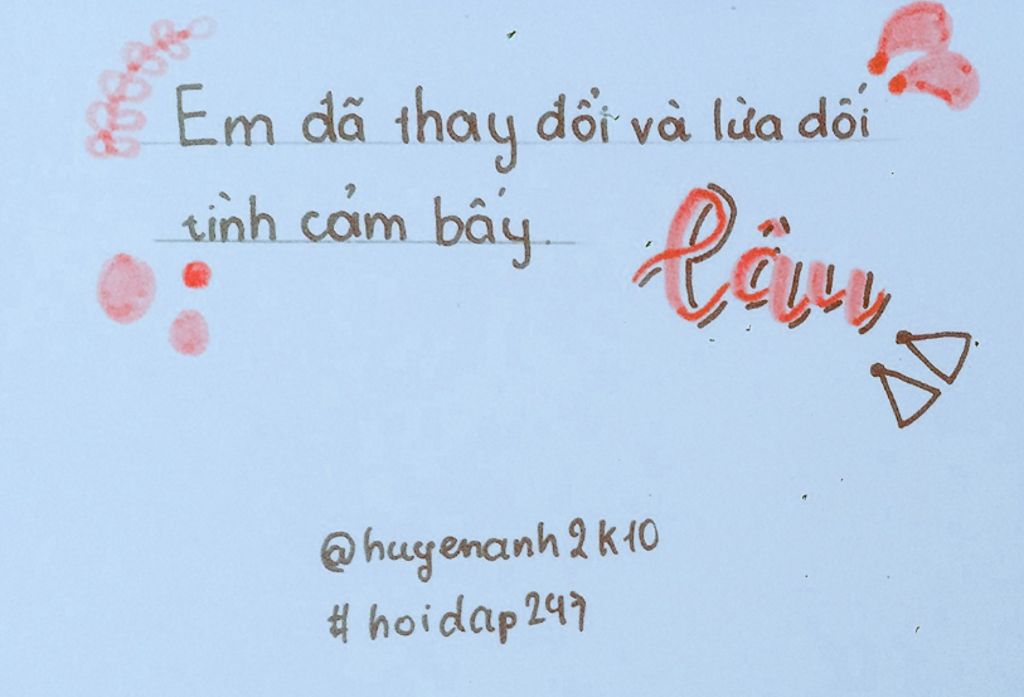 Em đã thay đổi và lừa dối
tình cảm bấy lâu
@huyenanh2k10
#hoidap247